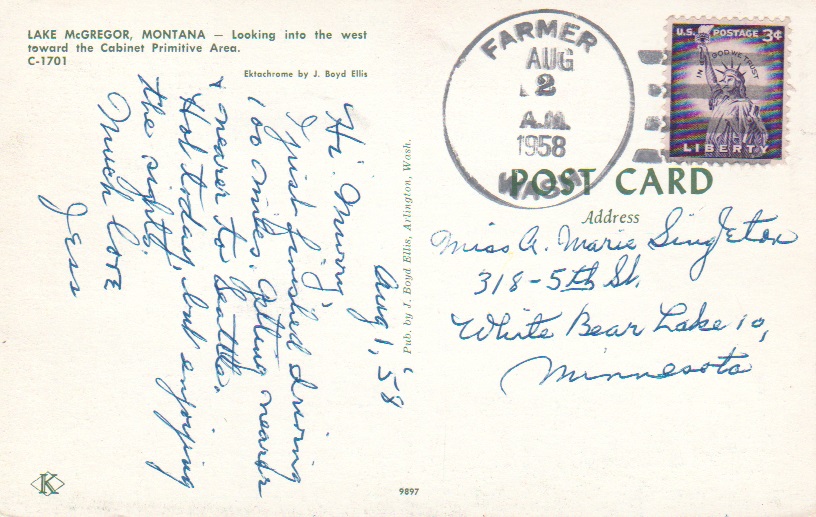 LAKE McGREGOR, MONTANA — Looking into the west
toward the Cabinet Primitive Area.
C-1701
Ektachrome by J. Boyd Ellis
Aug 1, '58
Hi
I just finished driving
100 miles. Getting nearer
& nearer to Seattle.
Hot today, but enjoying
the sights.
Much Love
Jess
Pub. by J. Boyd Ellis, Arlington, Wash.
K
9897
FARMER
AUG
2
A.M.
1958
WASH.
U.S. POSTAGE 3¢
IN GOD WE TRUST
LIBERTY
POST CARD
Address
Miss A. Marie Singleton
318-5th St.
White Bear Lake 10,
Minnesota